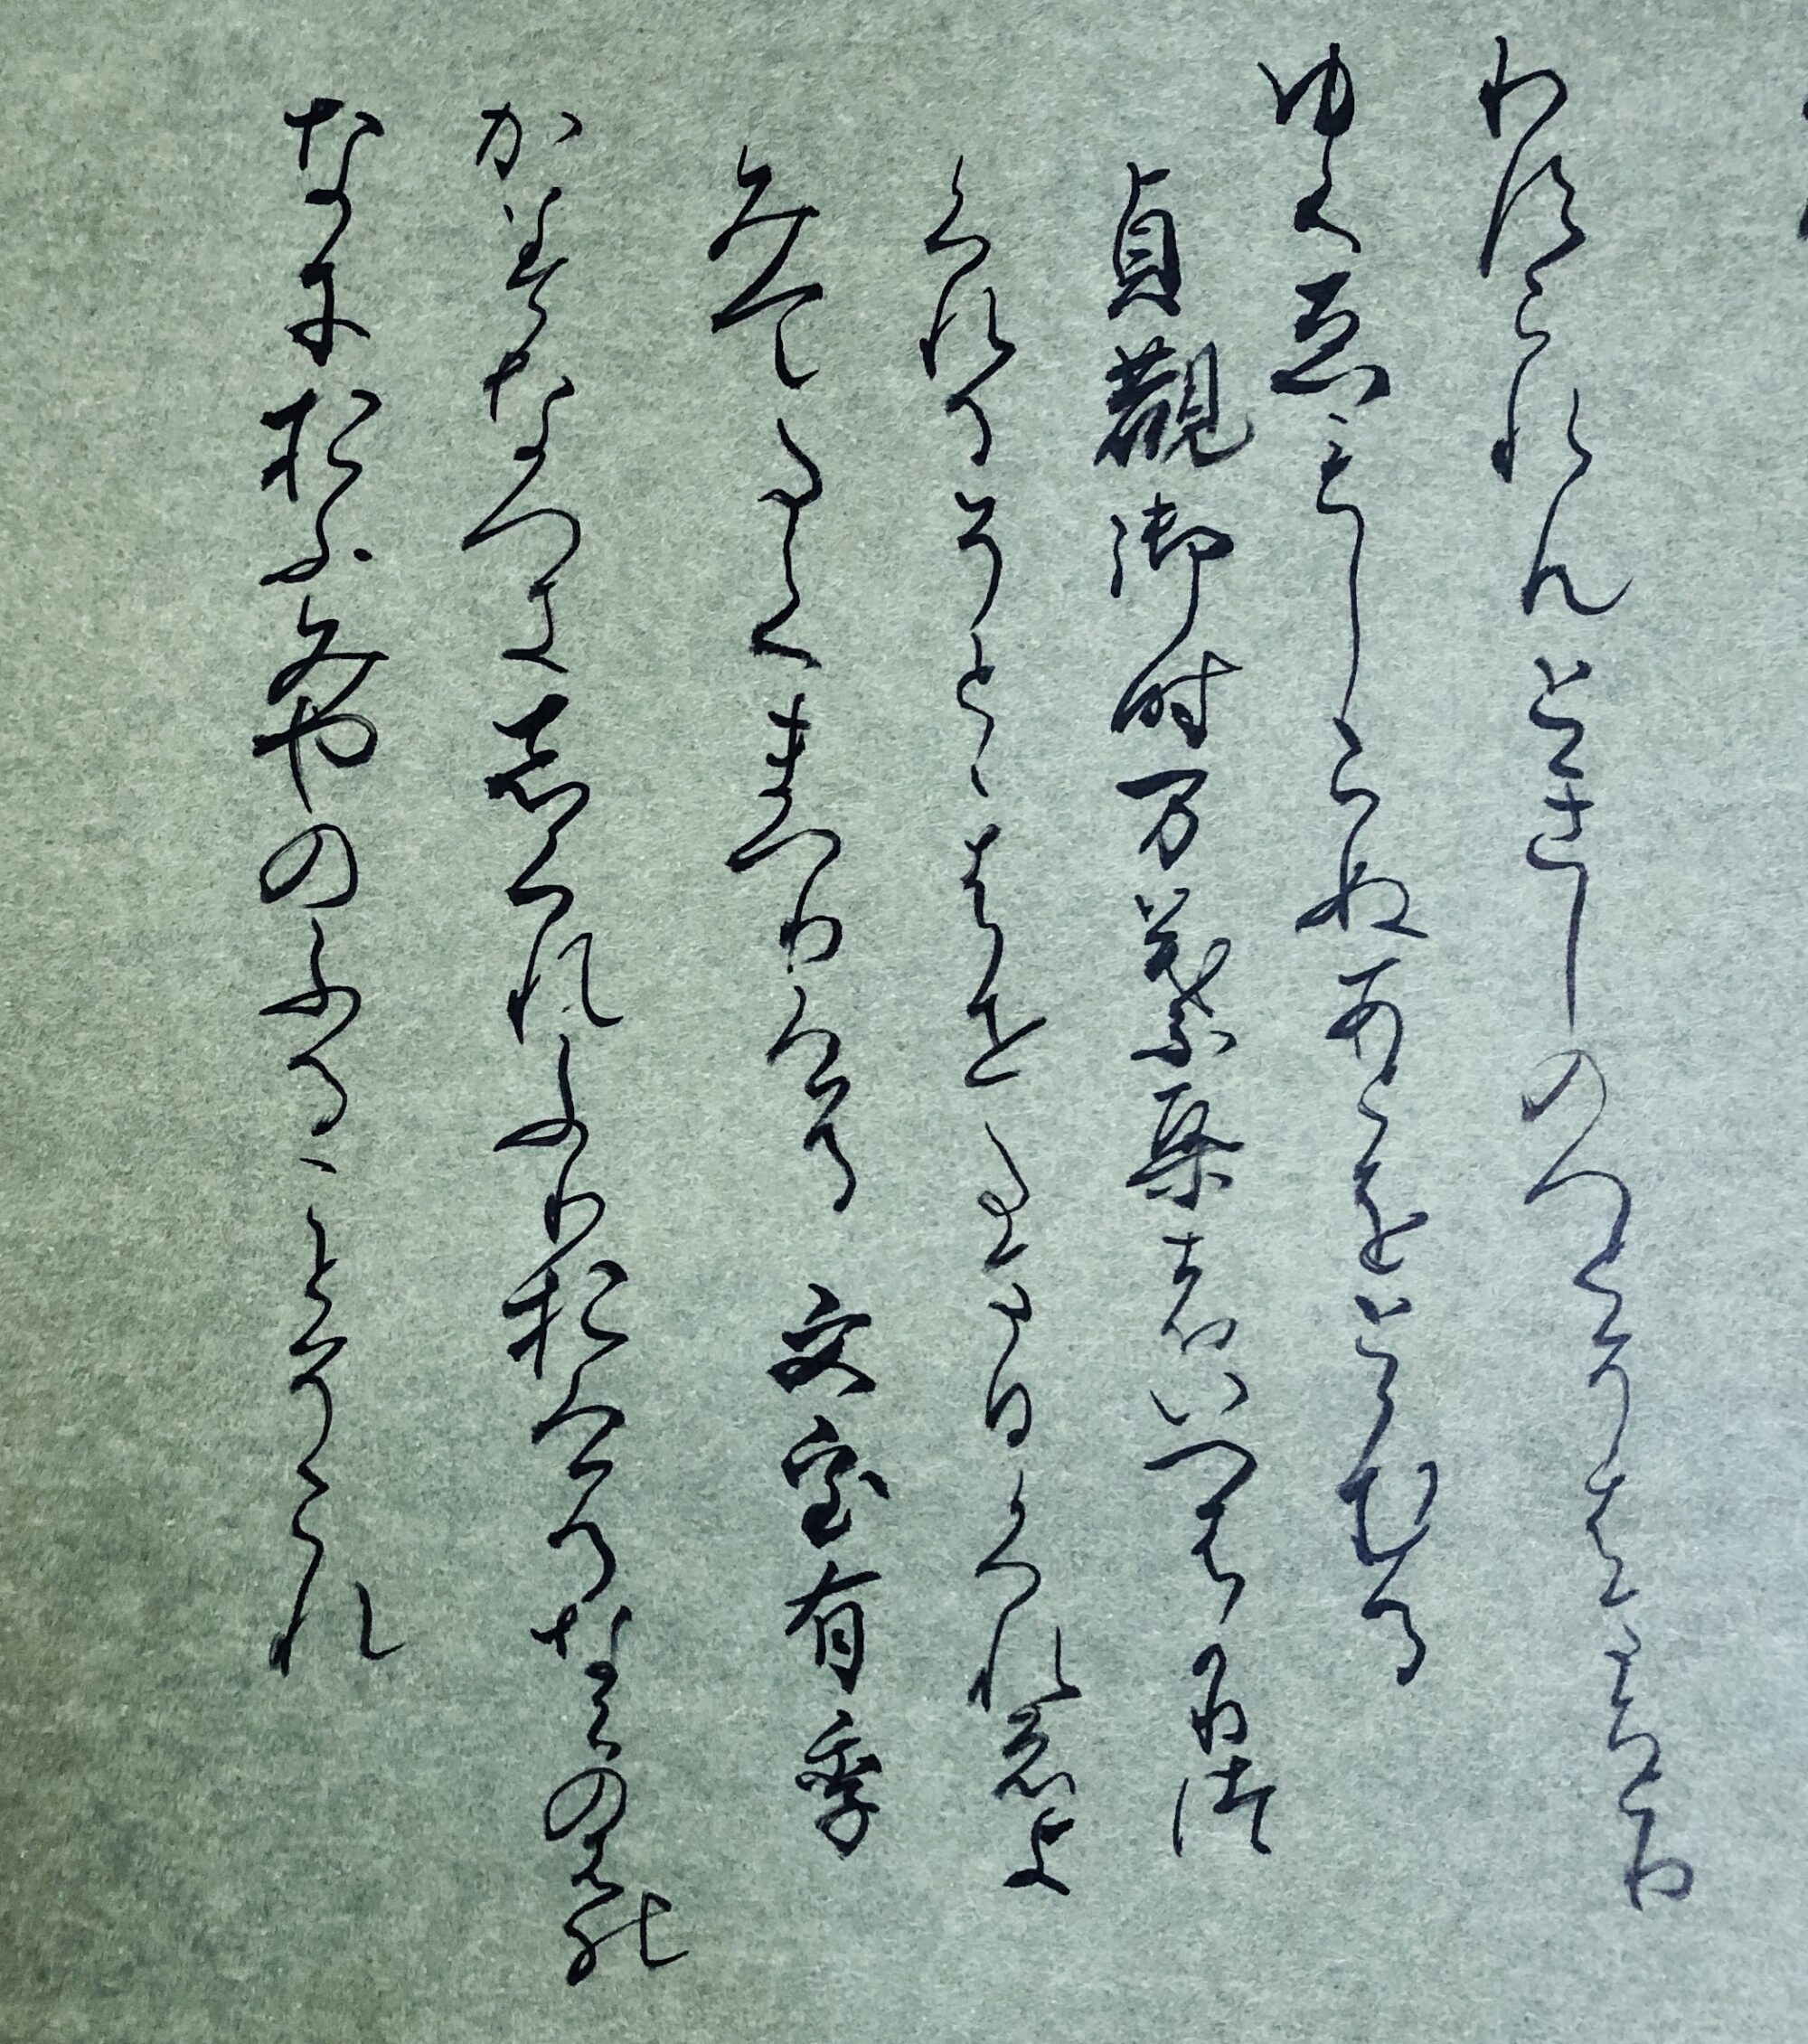 わすられんときしのへとそはまちとり
ゆくゑもしらぬあとをとゝむる
貞観御時万葉集はいつはかりつ
くれるそとゝはせたまひけれはよ
みてたてまつりける 文室有季
かみなつきしくれふりおけるならのはの
なにおふみやのふることそこれ